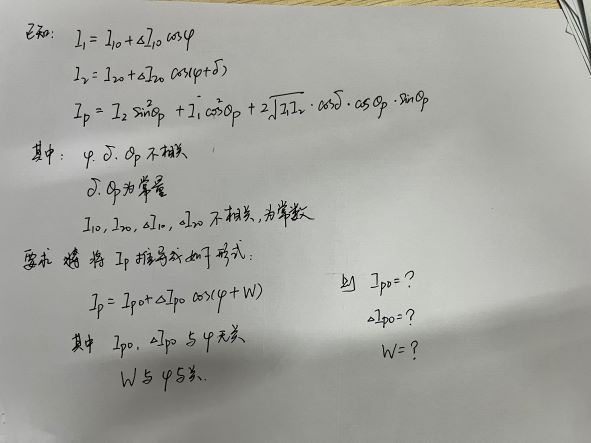 已知: I₁ = I₁₀ + ΔI₁₀ cosφ
I₂ = I₂₀ + ΔI₂₀ cos(φ+δ)
Iₚ = I₂ sin²θₚ + I₁ cos²θₚ + 2√(I₁I₂) · cosδ · cosθₚ · sinθₚ
其中: φ. δ. θₚ 不相关
δ. θₚ 为常量
I₁₀, I₂₀, ΔI₁₀, ΔI₂₀ 不相关, 为常数
要求 将 Iₚ 推导成如下形式:
Iₚ = Iₚ₀ + ΔIₚ₀ cos(φ+W)
其中 Iₚ₀, ΔIₚ₀ 与 φ 无关
W 与 φ 无关.
则 Iₚ₀ = ?
ΔIₚ₀ = ?
W = ?